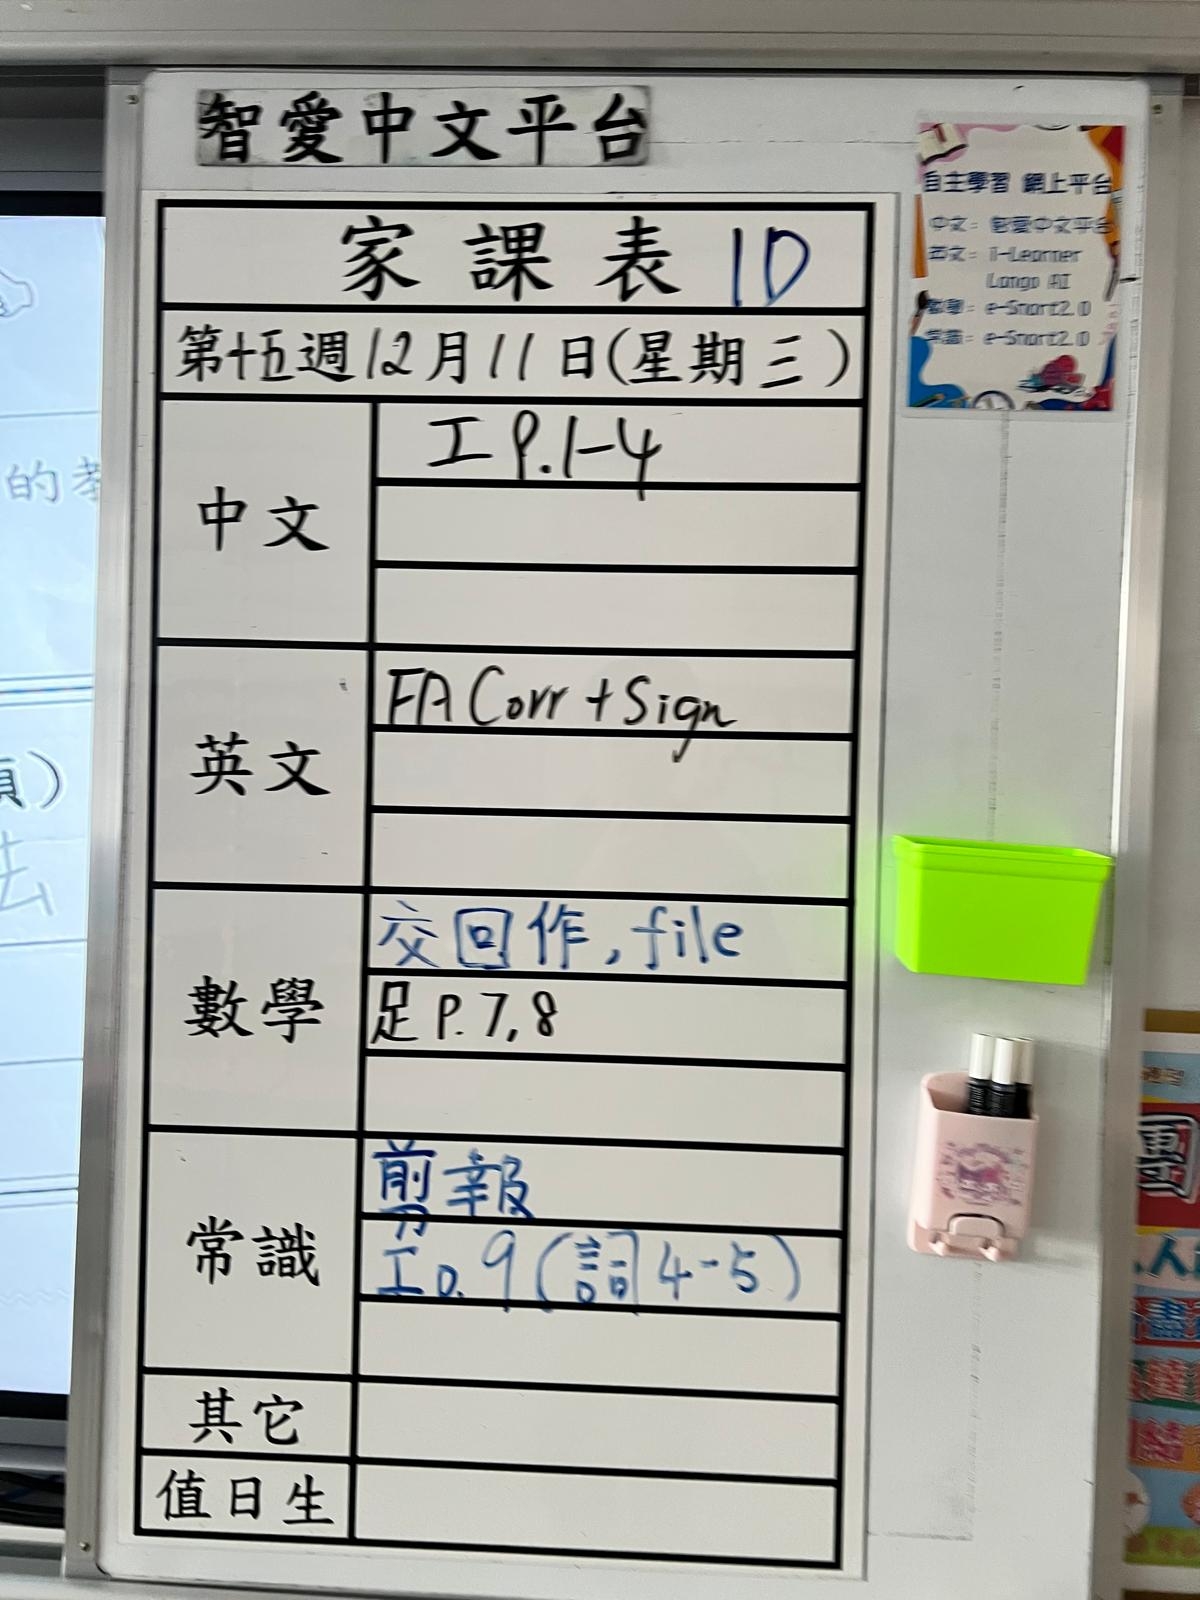 智愛中文平台
家課表 1D
第十五週12月11日(星期三)
中文
工 P.1-4
英文
FA Corr + Sign
數學
交回作, file
足 P. 7, 8
常識
剪報
工 p. 9 (詞 4-5)
其它
值日生
自主學習 網上平台
中文: 智愛中文平台
英文: i-Learner
Longo AI
數學: e-Smart2.0
常識: e-Smart2.0
的